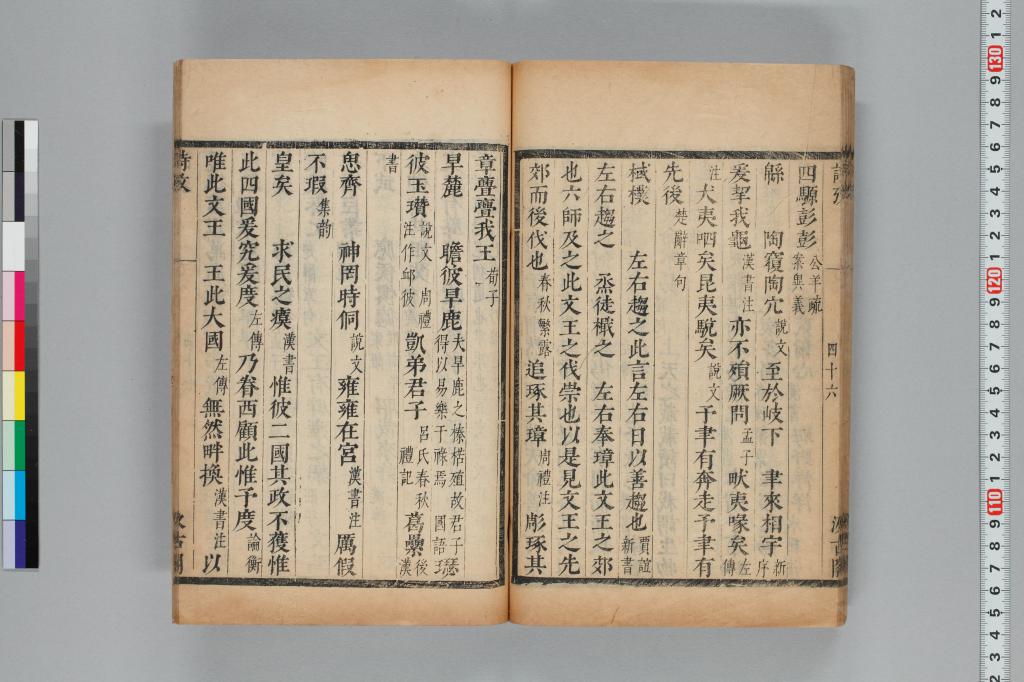 四騵彭彭公羊疏案異義
緜 陶㲄陶穴說文至於岐下 聿來相宇新序
爰挈我龜漢書注亦不殞厥問孟子畎夷喙矣左傳
注犬夷呬矣昆夷駾矣說文予聿有奔走予聿有
先後楚辭章句
棫樸 左右趨之此言左右日以善趨也賈誼新書
左右趨之 烝徒檝之 左右奉璋此文王之郊
也六師及之此文王之伐崇也以是見文王之先
郊而後伐也春秋繁露追琢其璋周禮注彫琢其
四十六
章亹亹我王荀子
旱麓 瞻彼旱鹿夫旱鹿之榛楛殖故君子得以易樂干祿焉 國語瑟
彼玉瓚說文 周禮注作邱彼凱弟君子呂氏春秋 禮記葛虆後漢
書
思齊 神罔時侗說文雍雍在宮漢書注厲假
不瑕集韵
皇矣 求民之瘼漢書惟彼二國其政不獲惟
此四國爰究爰度左傳乃眷西顧此惟予度論衡
唯此文王 王此大國左傳無然畔換漢書注以
詩攷